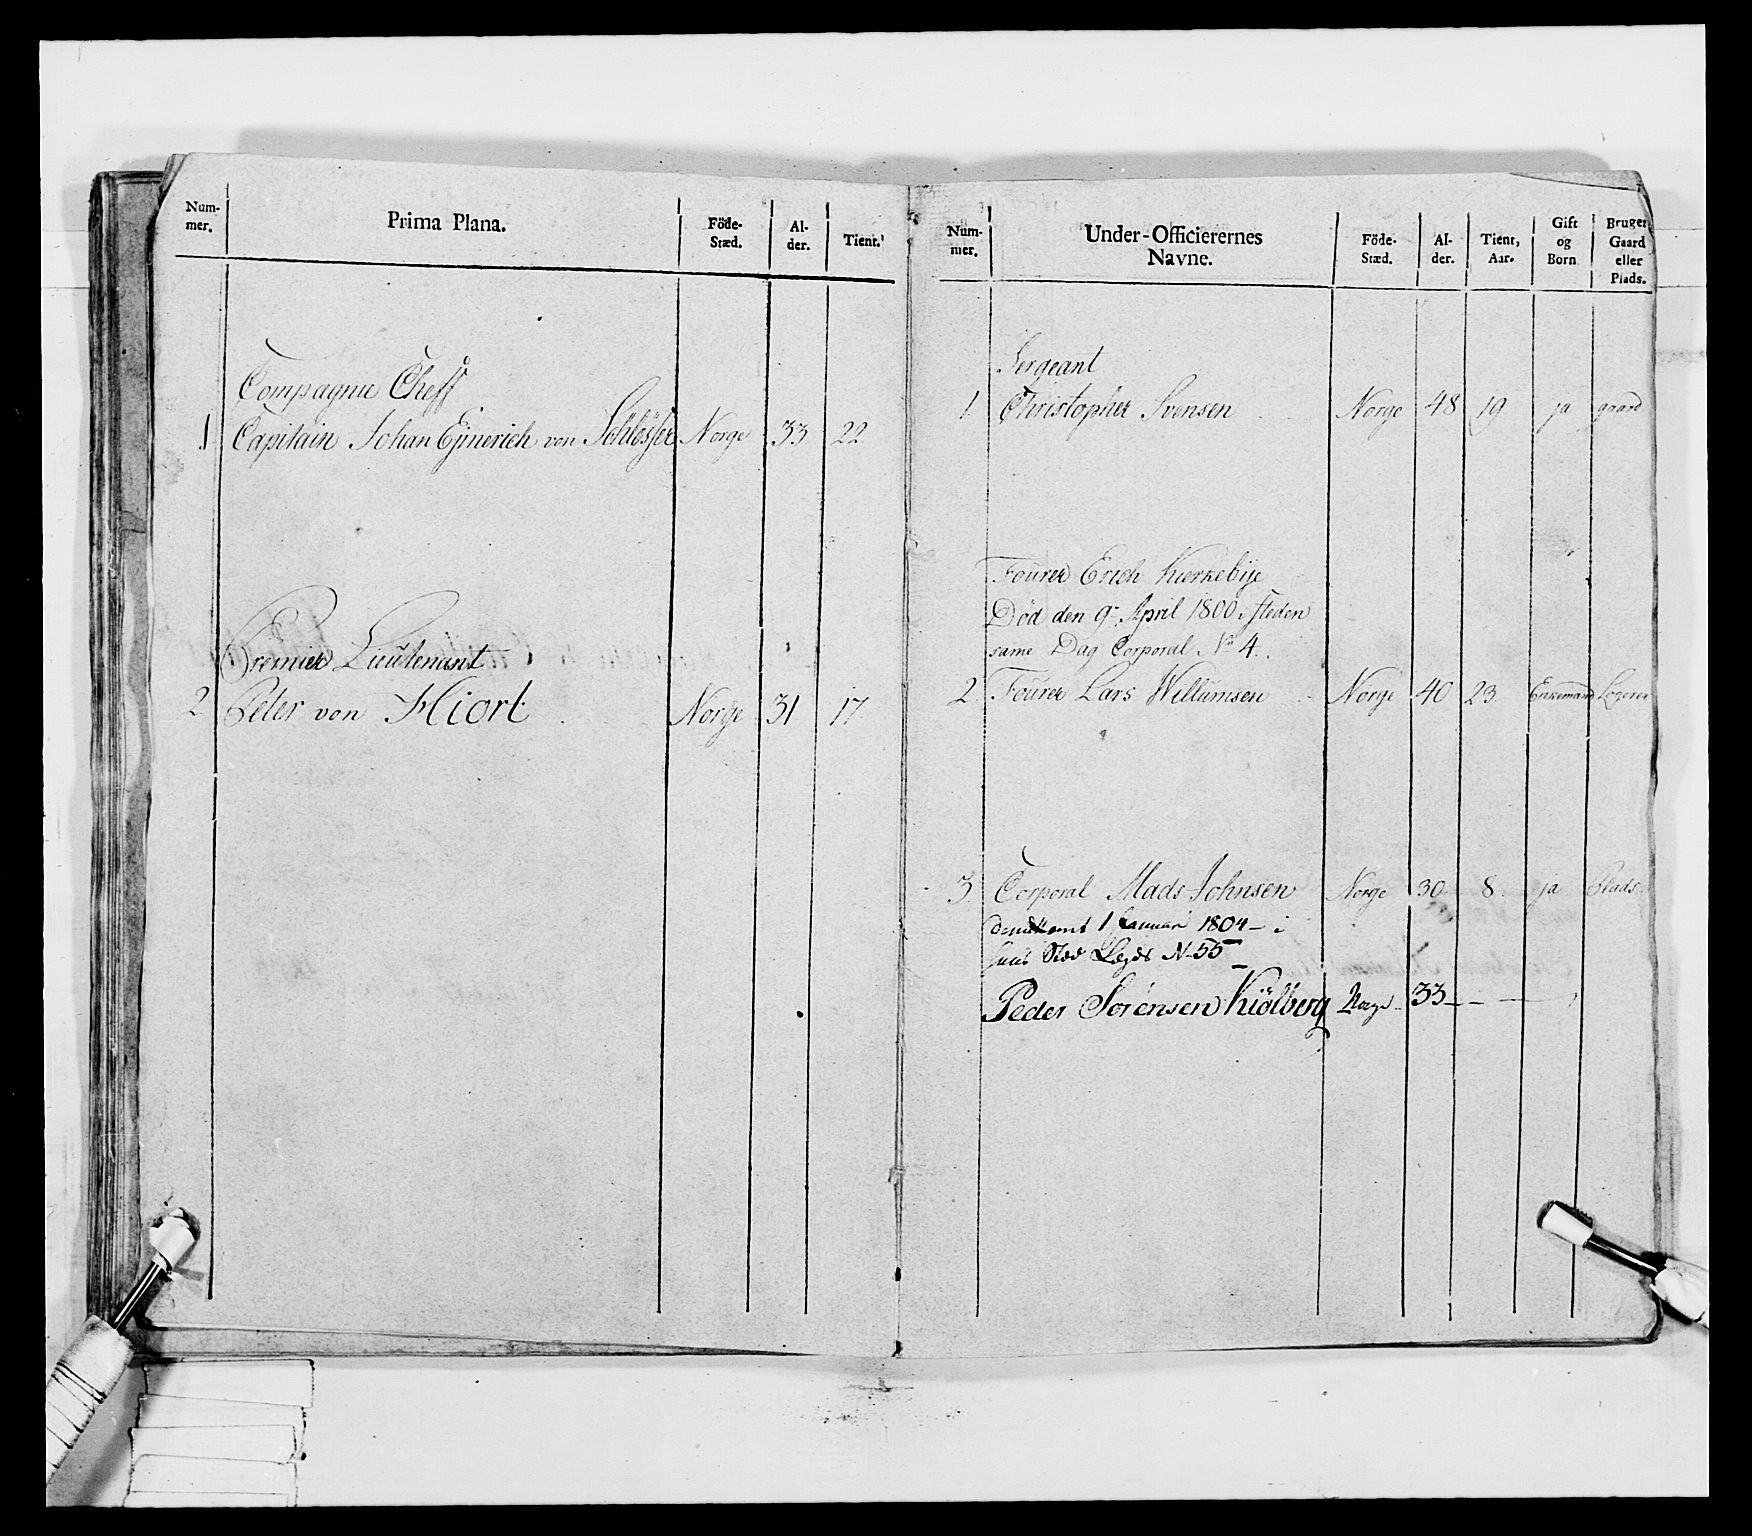 Num- mer. Prima Plana. Föde- Stæd. Al- der. Tient.
Compagnie Cheff
1 Capitain Johan Ejmerich von Schlösser Norge 33 22
Premier Lieutenant
2 Peter von Hiort Norge 31 17
Num- mer. Under-Officierernes Navne. Föde- Stæd. Al- der. Tient, Aar. Gift og Born Bruger Gaard eller Plads.
Sergeant
1 Christopher Svensen Norge 48 19 ja gaard
Fourer Erich Kierkebye
Død den 9de April 1800 i steden
same Dag Corporal No 4.
2 Fourer Lars Willumsen Norge 40 23 Enkemand Logerer
3. Corporal Mads Johnsen Norge 30 8. ja Plads.
1 Januari 1804 - i
hans Stæd Lægds N 55
Peder Sörensen Kiölberg Norge 33